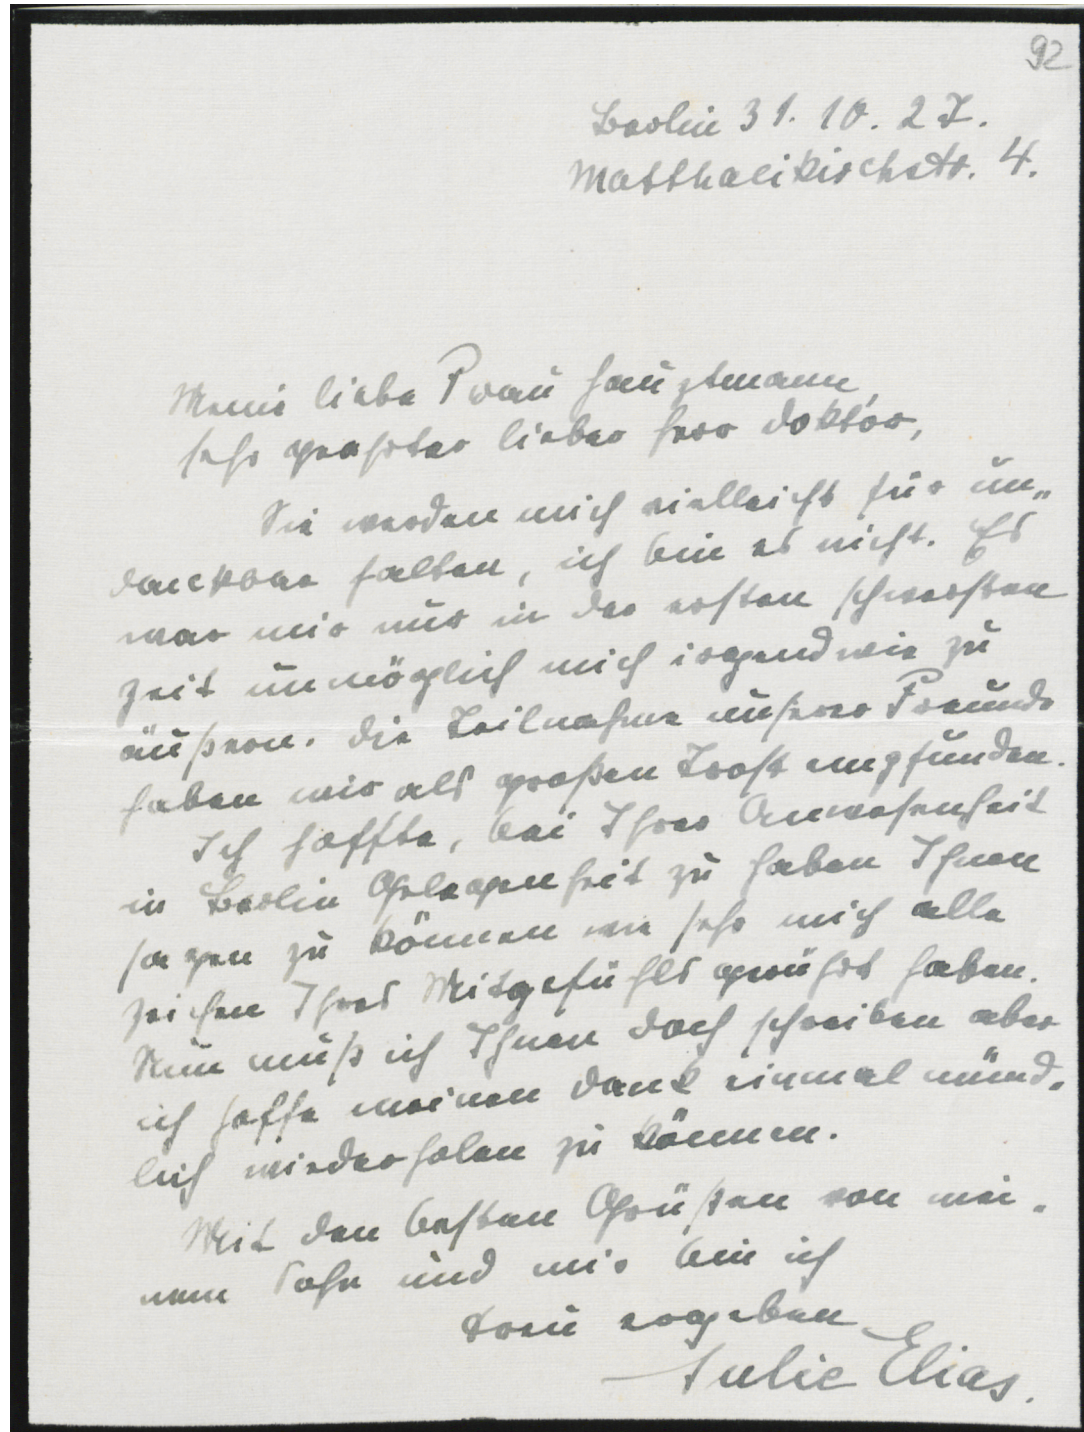 92
Berlin 31. 10. 27.
Matthaeikirchstr. 4.
Meine liebe Frau Hauptmann,
sehr geehrter lieber Herr Doktor,
Sie werden mich vielleicht für un-
dankbar halten, ich bin es nicht. Es
war mir nur in der ersten schwersten
Zeit unmöglich mich irgendwie zu
äußern. Die Teilnahme unserer Freunde
haben wir als großen Trost empfunden.
Ich hoffte, bei Ihrer Anwesenheit
in Berlin Gelegenheit zu haben Ihnen
sagen zu können wie sehr mich alle
Zeichen Ihres Mitgefühls gerührt haben.
Nun muß ich Ihnen doch schreiben aber
ich hoffe meinen Dank einmal münd-
lich wiederholen zu können.
Mit den besten Grüßen von mei-
nem Sohn und mir bin ich
treu ergeben
Julie Elias.